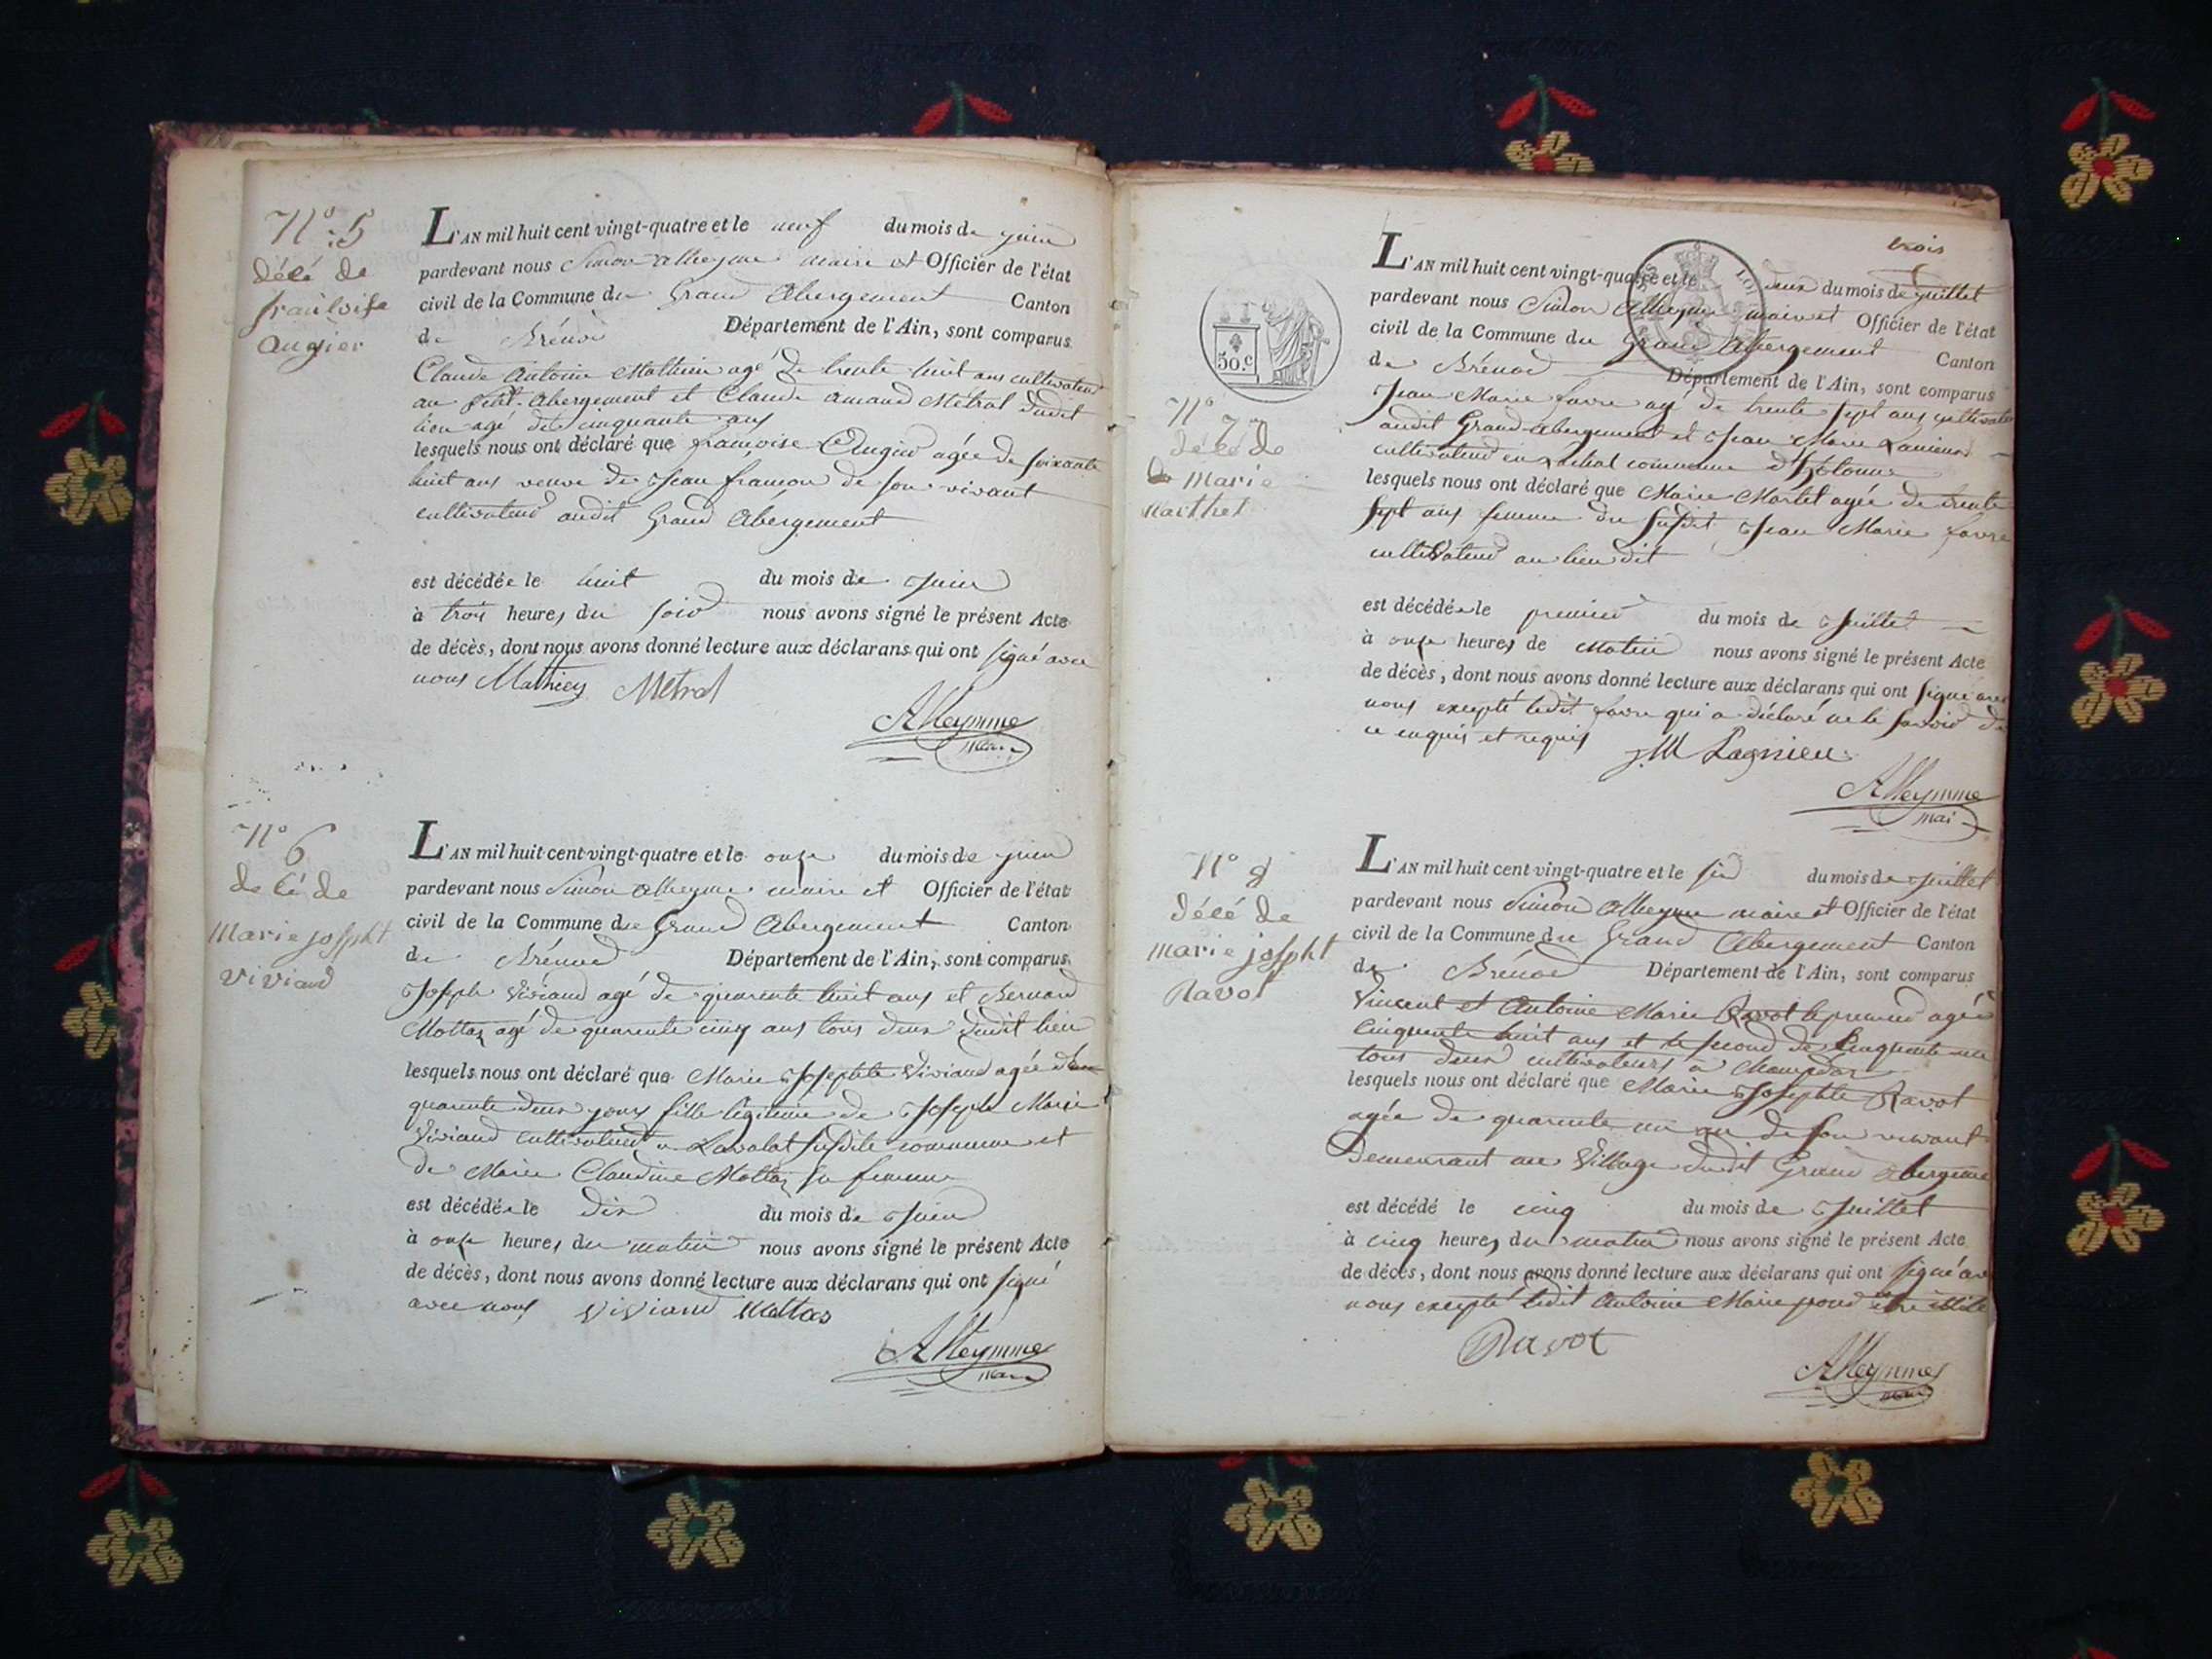 N° 5
décé de
françoise
Augier
L'AN mil huit cent vingt-quatre et le neuf du mois de juin
pardevant nous Simon alleyme maire et Officier de l'état
civil de la Commune du Grand Abergement Canton
de Brénod Département de l'Ain, sont comparus
Claude Antoine Mathieu agé de trente huit ans cultivateur
au petit-Abergement et Claude amand Métral dudit
lieu agé de cinquante ans
lesquels nous ont déclaré que françoise Augier agée de soixante
huit ans veuve de Jean françon de son vivant
cultivateur audit Grand Abergement
est décédée le huit du mois de Juin
à trois heures du soir nous avons signé le présent Acte
de décès, dont nous avons donné lecture aux déclarans qui ont signé avec
nous Mathieu Métral
Alleymme
maire
N° 6
décé de
Marie josepht
Viviand
L'AN mil huit cent vingt-quatre et le onze du mois de juin
pardevant nous Simon alleyme maire et Officier de l'état
civil de la Commune du Grand Abergement Canton
de Brénod Département de l'Ain, sont comparus
Joseph Viviand agé de quarente huit ans et Bernard
Mottaz agé de quarente cinq ans tous deux dudit lieu
lesquels nous ont déclaré que Marie Josephte Viviand agée de
quarente deux jours fille légitime de Joseph Marie
Viviand cultivateur a Lavalat susdite commune et
de Marie Claudine Mottaz sa femme
est décédée le dix du mois de Juin
à onze heures du matin nous avons signé le présent Acte
de décès, dont nous avons donné lecture aux déclarans qui ont signé
avec nous Viviand Mottas
Alleymme
maire
trois
50.c
N° 7
décé de
de Marie
Marthet
L'AN mil huit cent vingt-quatre et le deux du mois de juillet
pardevant nous Simon Alleyme maire et Officier de l'état
civil de la Commune du Grand Abergement Canton
de Brénod Département de l'Ain, sont comparus
Jean Marie favre agé de trente sept ans cultivateur
audit Grand-abergement et Jean Marie
cultivateur en commune d'hotonne
lesquels nous ont déclaré que Marie Martel agée de trente
sept ans femme du susdit Jean Marie favre
cultivateur au lieu dit
est décédée le premier du mois de Juillet
à onze heures de matin nous avons signé le présent Acte
de décès, dont nous avons donné lecture aux déclarans qui ont signé avec
nous excepté ledit favre qui a déclaré ne le savoir de
ce enquis et requis J.M Lagnieu
Alleymme
mai
N° 8
décé de
marie josepht
Ravot
L'AN mil huit cent vingt-quatre et le six du mois de Juillet
pardevant nous Simon Alleyme maire et Officier de l'état
civil de la Commune du Grand Abergement Canton
de Brénod Département de l'Ain, sont comparus
Vincent et Antoine Marie Ravot le premier agé de
cinquente huit ans et le second de cinquente un
tous deux cultivateurs à Champdor
lesquels nous ont déclaré que Marie Josephte Ravot
agée de quarente un an de son vivant
demeurant au Village dudit Grand abergement
est décédé le cinq du mois de Juillet
à cinq heures du matin nous avons signé le présent Acte
de décès, dont nous avons donné lecture aux déclarans qui ont signé av
nous excepté ledit Antoine Marie pour
Ravot
Alleymmes
maire